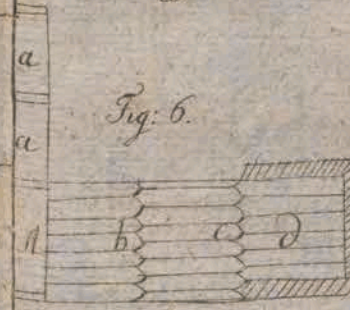 a
Fig: 6.
a
A b c d